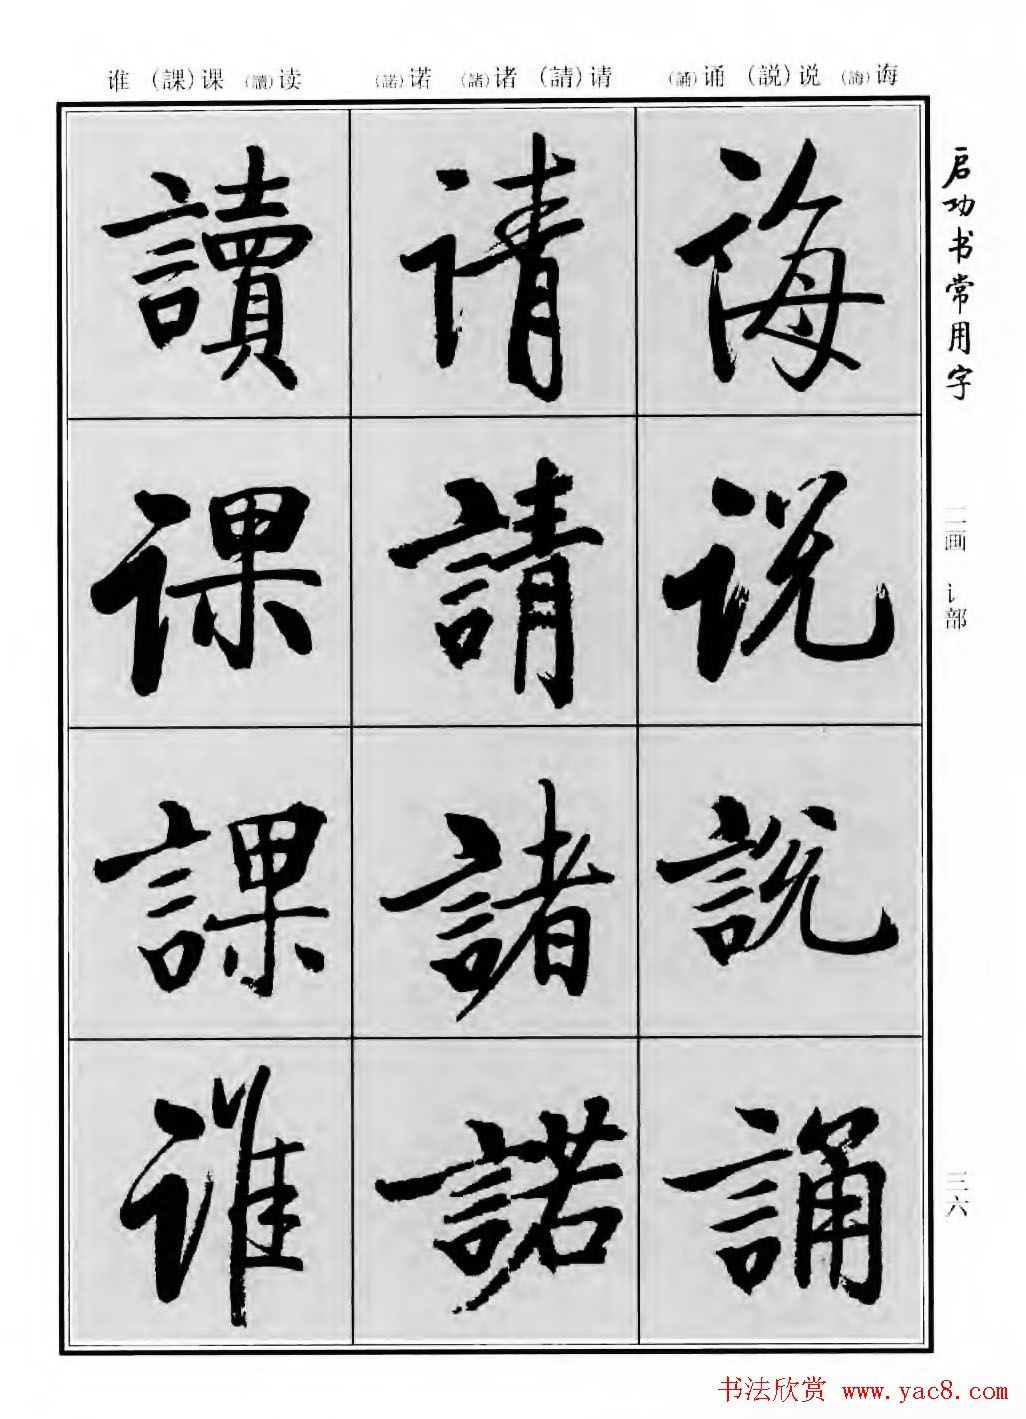 谁 （課）课 （讀）读 （諾）诺 （諸）诸 （請）请 （誦）诵 （説）说 （誨）诲
启功书常用字
二画 讠部
三六
诲
说
説
誦
请
請
諸
諾
讀
课
課
谁
书法欣赏 www.yac8.com